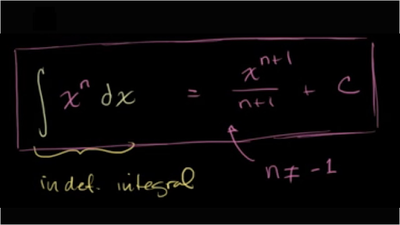 ∫ xⁿ dx = xⁿ⁺¹/n+1 + C
indef. integral
n ≠ -1